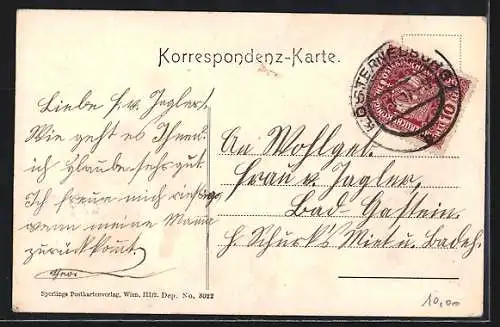 Korrespondenz-Karte.
KLOSTERNEUBURG
Liebe F. v. Jagler!
Wie geht es Ihnen.
ich glaube sehr gut.
Ich freue mich richtig
wenn meine Mama
zurückkomt.
An Wohlgeb.
Frau v. Jagler,
Bad-Gastein.
H. Schurk's Miet u. Badeh.
Sperlings Postkartenverlag, Wien, III/2. Dep. No. 3022
10,00